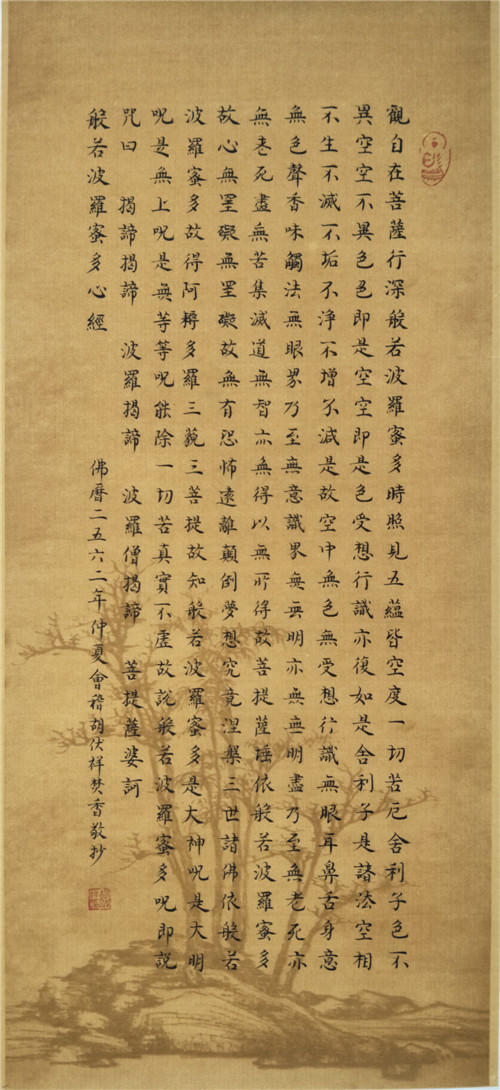 觀自在菩薩行深般若波羅蜜多時照見五蘊皆空度一切苦厄舍利子色不
異空空不異色色即是空空即是色受想行識亦復如是舍利子是諸法空相
不生不滅不垢不淨不增不減是故空中無色無受想行識無眼耳鼻舌身意
無色聲香味觸法無眼界乃至無意識界無無明亦無無明盡乃至無老死亦
無老死盡無苦集滅道無智亦無得以無所得故菩提薩埵依般若波羅蜜多
故心無罣礙無罣礙故無有恐怖遠離顛倒夢想究竟涅槃三世諸佛依般若
波羅蜜多故得阿耨多羅三藐三菩提故知般若波羅蜜多是大神呪是大明
呪是無上呪是無等等呪能除一切苦真實不虛故說般若波羅蜜多呪即說
咒曰 揭諦揭諦 波羅揭諦 波羅僧揭諦 菩提薩婆訶
般若波羅蜜多心經
佛曆二五六二年仲夏會稽胡伏祥焚香敬抄